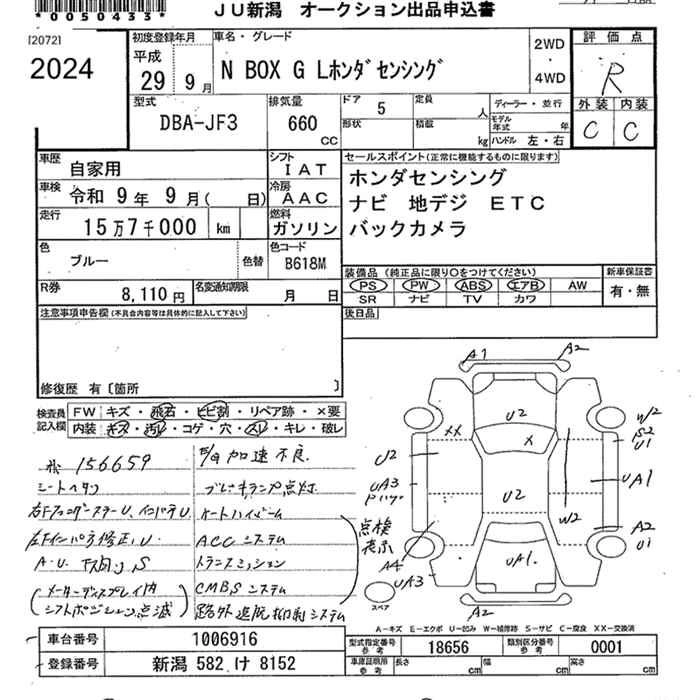 *0050433*
ＪＵ新潟　オークション出品申込書
[2072]
2024
初度登録年月
平成
29 9 月
車名・グレード
N BOX G Lホンダセンシング
2WD
・
4WD
評価点
R
外装 内装
C C
型式
DBA-JF3
排気量
660
CC
ドア
5
定員
人
形状
積載
kg
ディーラー・並行
モデル年式
年
ハンドル 左・右
車歴
自家用
シフト
IAT
セールスポイント(正常に機能するものに限ります)
ホンダセンシング
ナビ 地デジ ETC
バックカメラ
車検
令和 9 年 9 月( 日)
冷房
AAC
走行
15万7千000 km
燃料
ガソリン
色
ブルー
色替
色コード
B618M
装備品(純正品に限り○をつけてください)
PS PW ABS エアB AW
SR ナビ TV カワ
新車保証書
有・無
R券
8,110 円
名変通知期限
月 日
後日品
注意事項申告欄(不具合内容等は具体的に記入して下さい)
修復歴 有〔箇所 〕
検査員
記入欄
FW キズ・飛石・ヒビ割・リペア跡・×要
内装 キズ・汚レ・コゲ・穴・スレ・キレ・破レ
156659
シートヘタリ
右Fフェンダーステー U、インパネ U
左Fインパネ修正、U
A・U 下廻り S
(メーターディスプレイ内
シフトポジション点滅)
E/G 加速不良
ブレーキランプ点灯
オートハイビーム
ACC システム
トランスミッション
CMBS システム
路外逸脱抑制システム
点検
表示
A1 A2
U2
XX
X
U2
UA3
U2
W2
W2
S2
U1
UA1
A2
U1
A4
UA3
UA1
A2
スペア
A-キズ E-エクボ U-凹み W-補修跡 S-サビ C-腐食 XX-交換済
車台番号
1006916
登録番号
新潟 582 け 8152
型式指定番号
参考
18656
類別区分番号
参考
0001
車庫証明用
参考
長さ
cm
幅
cm
高さ
cm